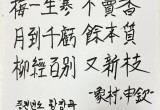 梅一生寒 不賣香
月到千虧 餘本質
柳經百別 又新枝
家村, 申欽